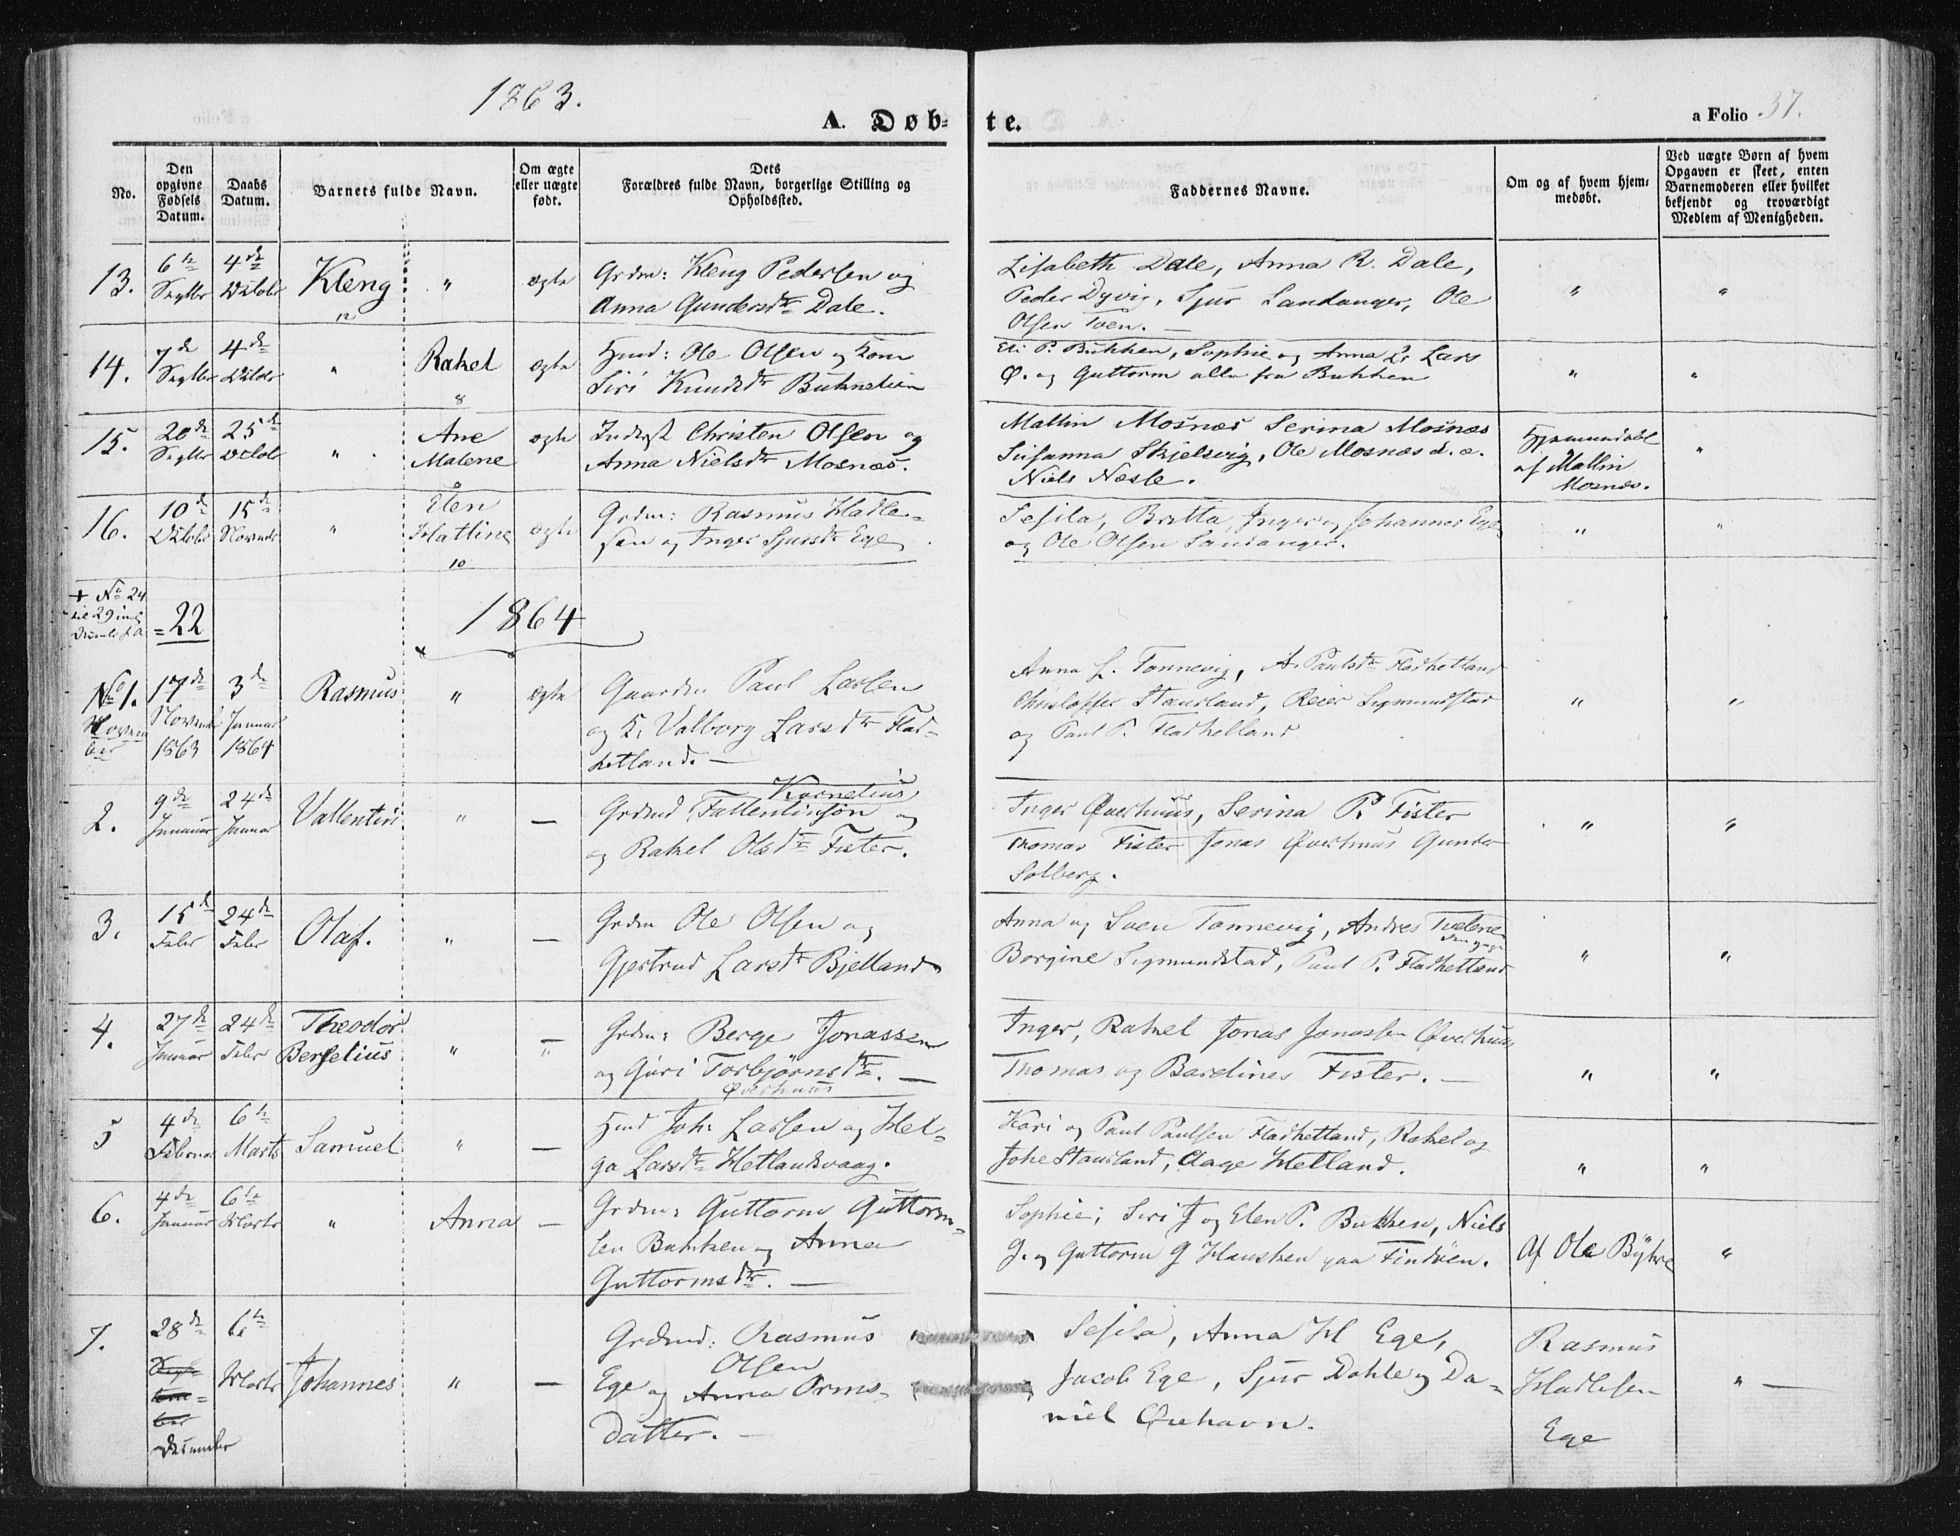 1863.
A. Døbte.
a Folio 37.
No.
Den opgivne Fødsels Datum.
Daabs Datum.
Barnets fulde Navn.
Om ægte eller uægte født.
Dets Forældres fulde Navn, borgerlige Stilling og Opholdssted.
Faddernes Navne.
Om og af hvem hjemmedøbt.
Ved uægte Børn af hvem Opgaven er skeet, enten Barnemoderen eller hvilket bekjendt og troværdigt Medlem af Menigheden.
13. 6te Septbr 4de Octobr Kleng " ægte
12
Grdm: Kleng Pedersen og
Anna Gundersdtr Dale.
Lisabeth Dale, Anna R. Dale,
Peder Dyvig, Sjur Landanger, Ole
Olsen Toen. —
" "
14. 7de Septbr 4de Octobr " Rakel ægte
8
Husd: Ole Olsen og Kone
Siri Knudsdtr Buknstein
Eli P. Bukken, Sophie og Anna L. Lars
Ø. og Guttorm alle fra Bukken
" "
15. 20de Septbr 25de Octob " Ane
Malene ægte
Inderst Christen Olsen og
Anna Nielsdtr Mosnæs.
Mallin Mosnæs Serina Mosnæs
Susanna Skjelsvig, Ole Mosnæs d. æ.
Niels Næsle.
Hjemmedøbt
af Mallin
Mosnæs.
"
16. 10de Octobr 15de Novembr " Elen
Hattine ægte
10
Grdm: Rasmus Hadle-
sen og Inger Sjursdtr Ege
Sesila, Britta, Inger og Johannes Ege
og Ole Olsen Landanger.
" "
+ No 24
til 29 incl
= 22
1864
No 1. 17de 3de Rasmus " ægte
Novem
ber
Novembr
1863
Januar
1864
Gaardm: Paul Larsen
og K. Valborg Larsdtr Flad-
hetland. —
Anna L. Tonnevig, A. Paulsdtr Fladhetland
Christoffer Stausland, Reier Sigmundstad
og Paul P. Fladhetland
" "
2. 9de Januar 24de Januar Vallentin " —
Kornelius
Grdmd Fallentinsøn og
og Rakel Olsdtr Fister.
Inger Øverhuus, Serina P. Fister
Thomas Fister Jonas Øverhuus Gunder
Solberg.
" "
3. 15de Febr 24de Febr Olaf. " —
Grdm Ole Olsen og
Gjertrud Larsdtr Bjelland
Anna og Sven Tonnevig, Andres Tvetene
den yngr
Borgine Sigmundstad, Paul P. Fladhetland
" "
4. 27de Januar 24de Febr Theodor
Berselius " —
Grdm: Berge Jonassen
og Guri Torbjørnsdtr. —
Øverhuus
Inger, Rakel Jonas Jonassen Øverhuus
Thomas og Bardines Fister. —
" "
5 4de Februar 6te Marts Samuel " —
Husd Joh: Larsen og Hel-
ga Larsdtr Hetlandsvaag.
Kari og Paul Paulsen Fladhetland, Rakel og
Johe Stausland, Aage Hetland.
" "
6. 4de Januar 6te Marts " Anna —
Grdm: Guttorm Guttorm-
sen Bukken og Anna
Guttormsdtr. —
Sophie, Siri J og Elen P. Bukken, Niels
G. og Guttorm G Hausken paa Findøen.
Af Ole Byhre "
7. 28de 6te
Septem
ber
December
Marts Johannes " —
Grdmd: Rasmus
Olsen
Ege og Anna Orms-
datter. —
Sesila, Anna H Ege,
Jacob Ege, Sjur Dahle og Da-
niel Øvehavn.
Rasmus
Hadlesen
Ege
" —